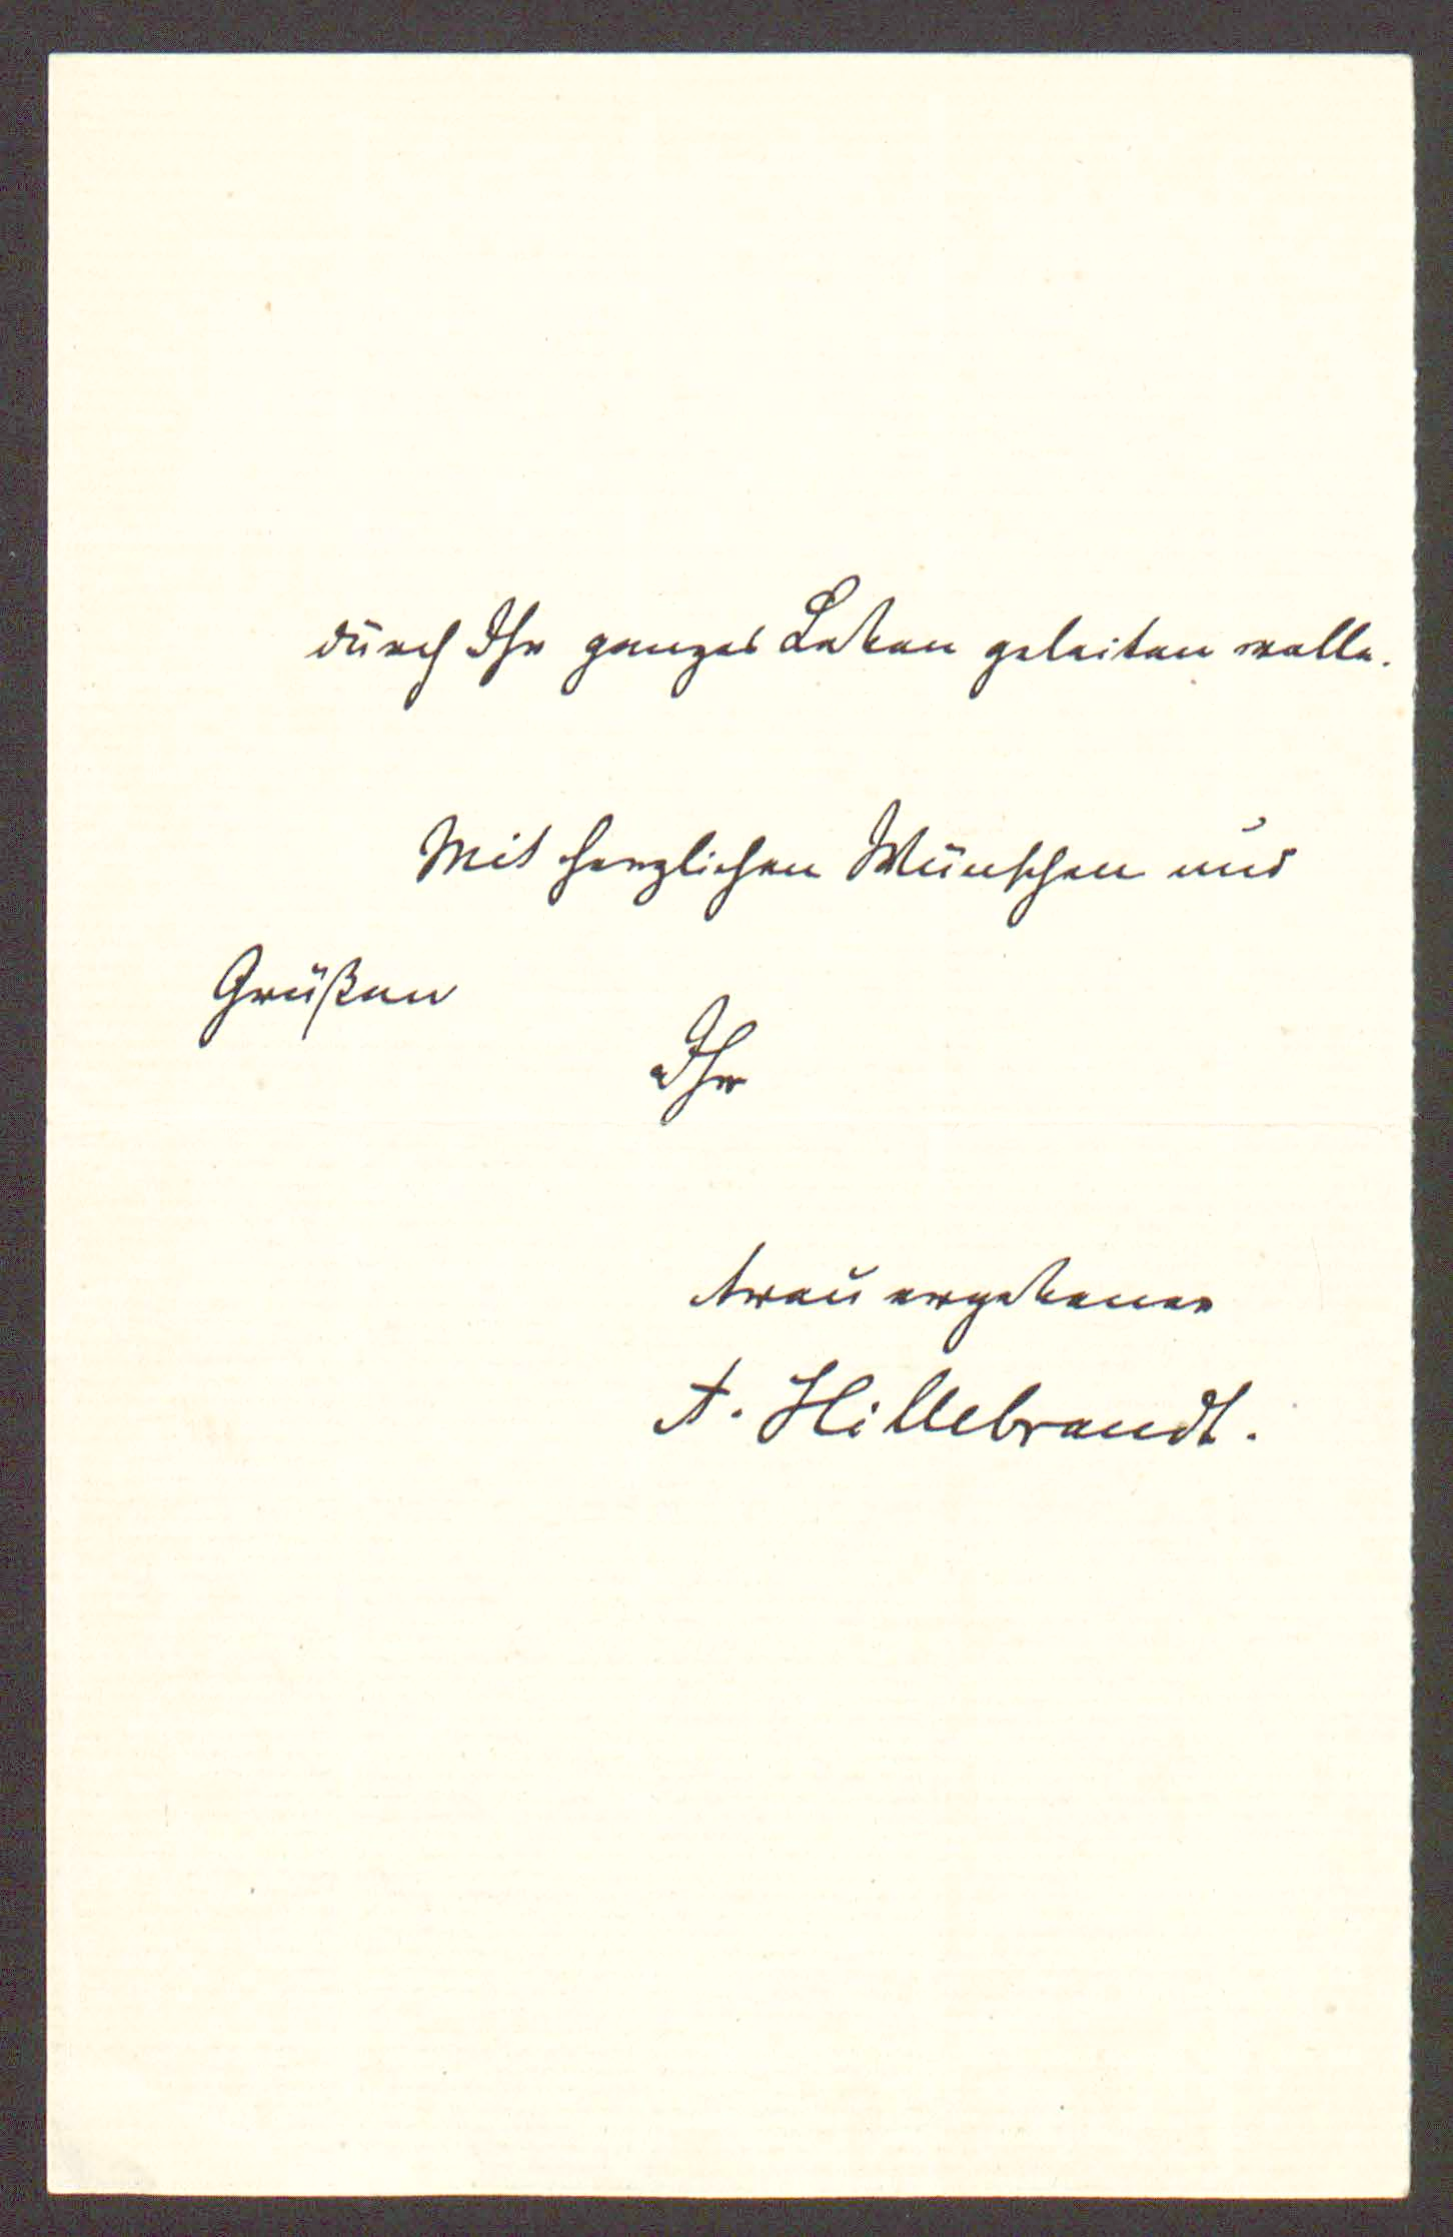 durch Ihr ganzes Leben geleiten wolle.
Mit herzlichen Wünschen und
Grüßen
Ihr
treu ergebener
A. Hillebrandt.